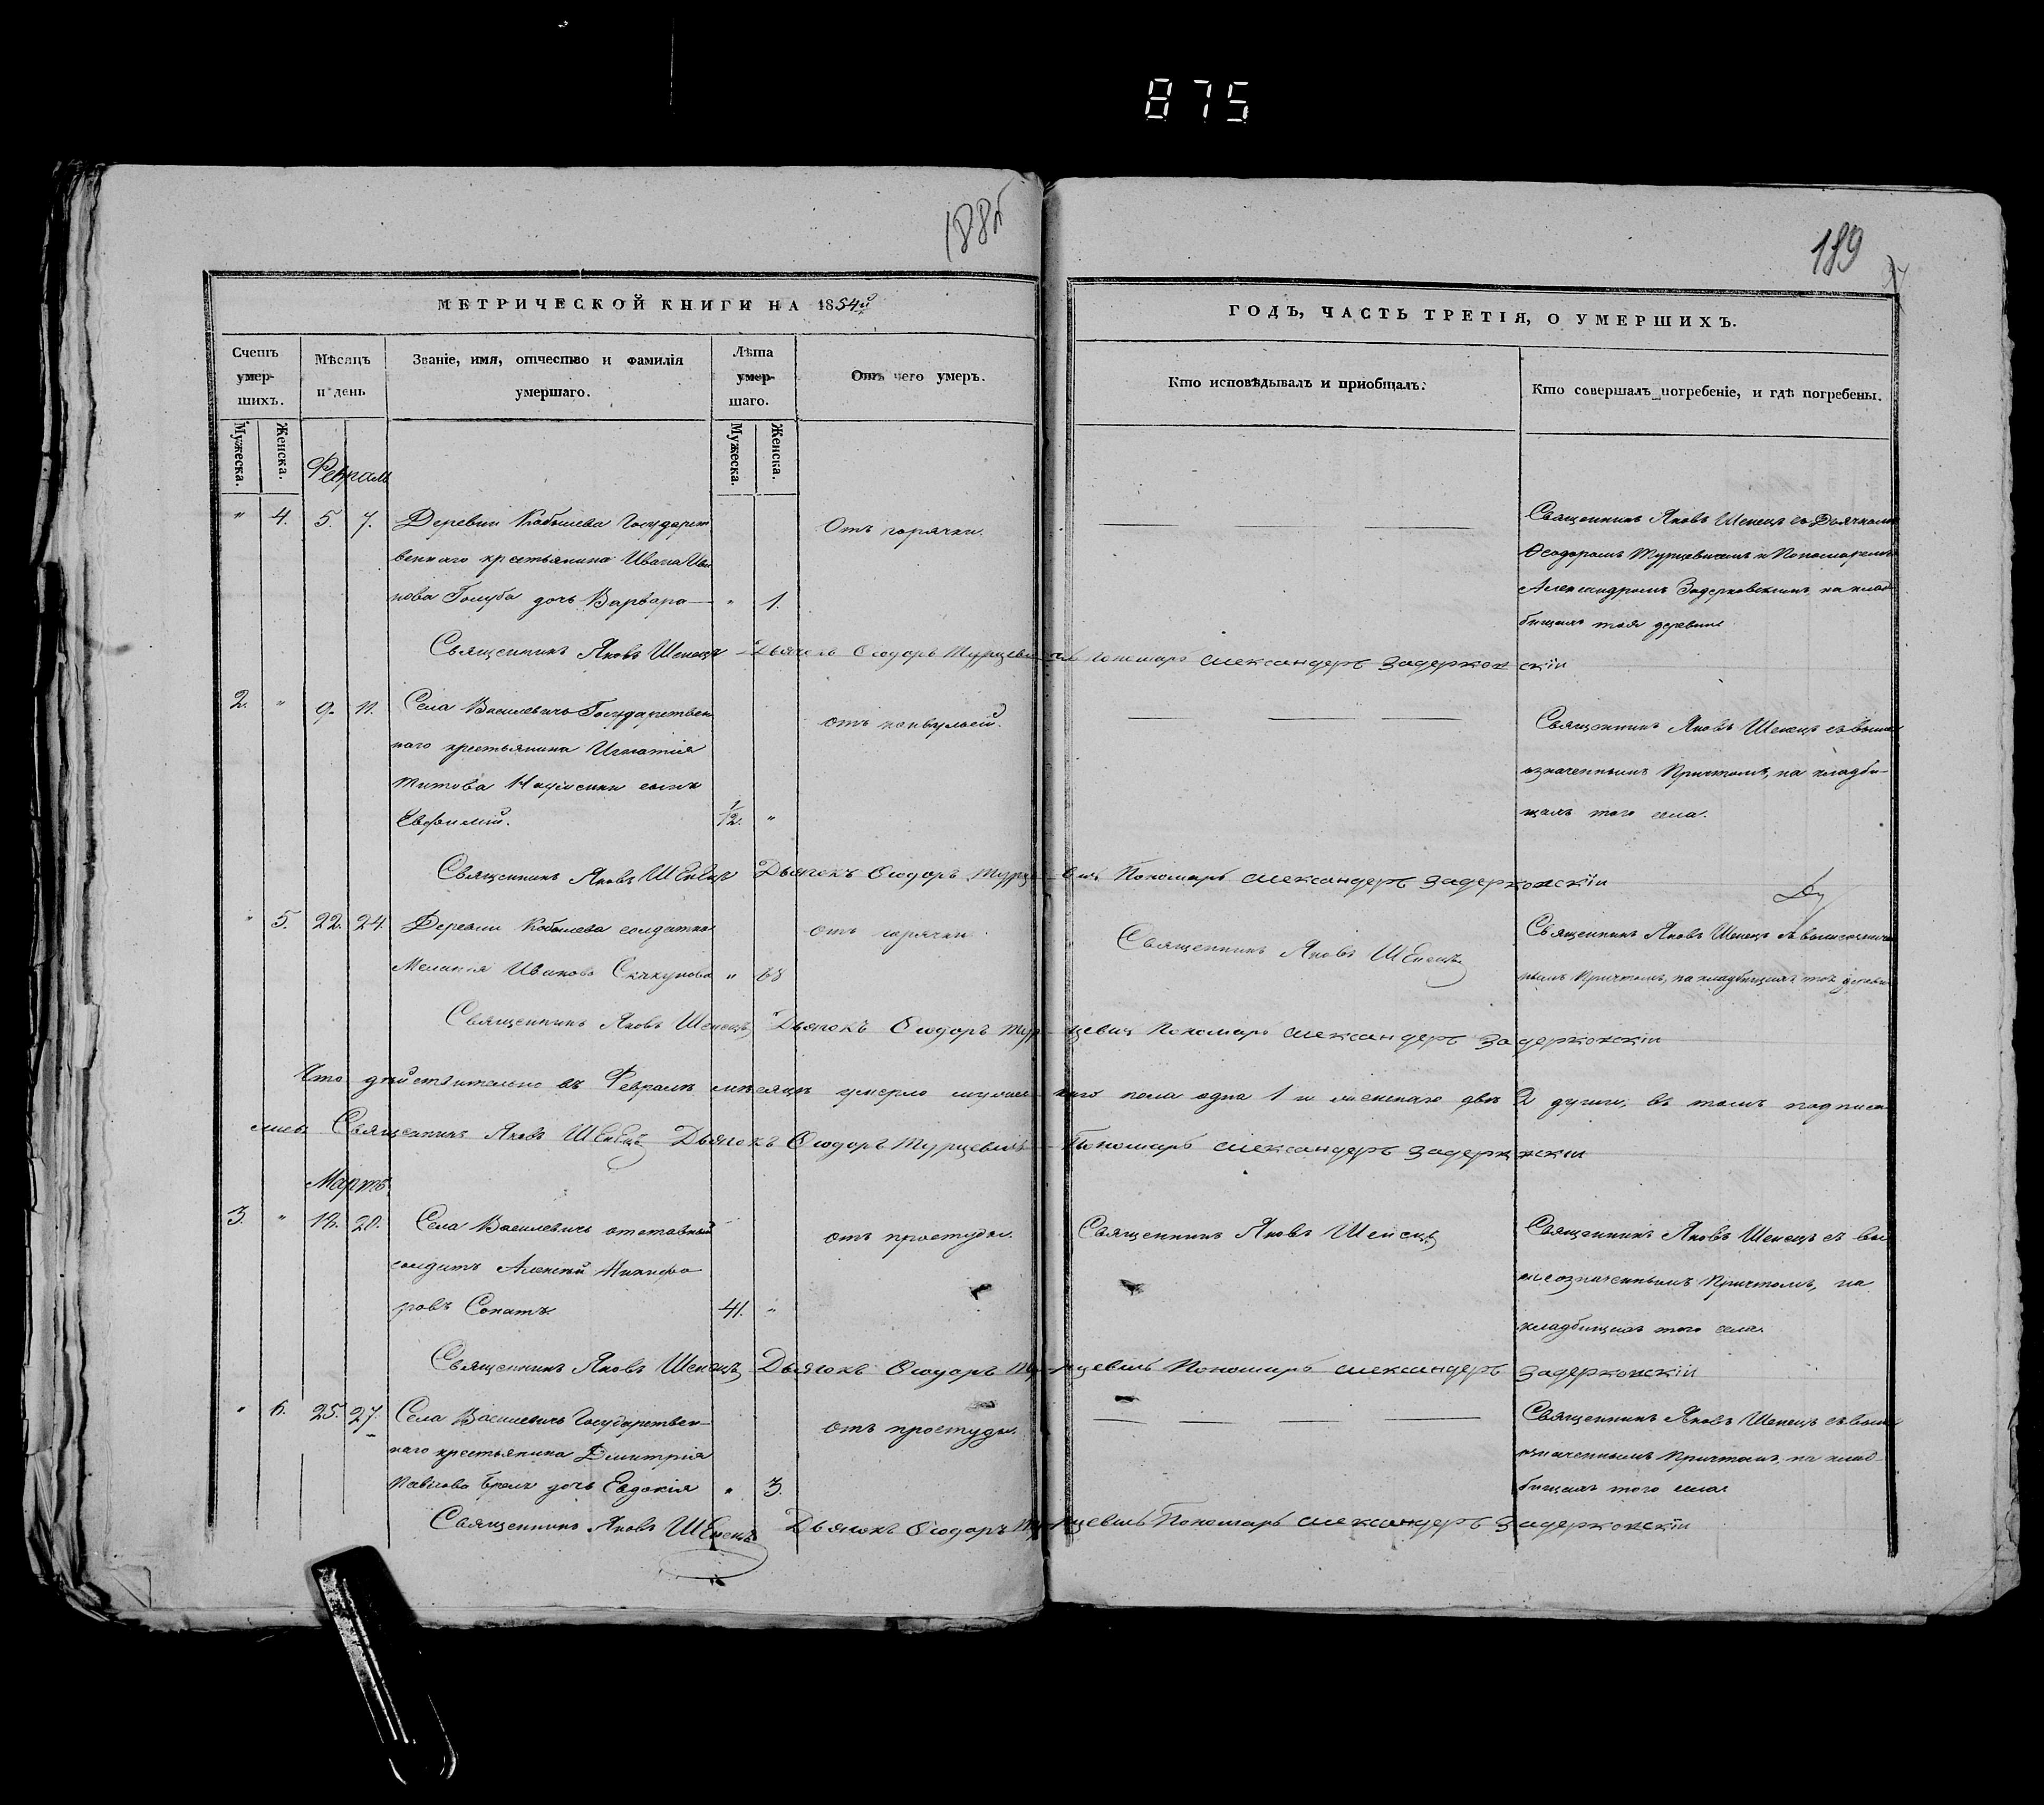 875
188б
189
МЕТРИЧЕСКОЙ КНИГИ НА 1854й
ГОДЪ, ЧАСТЬ ТРЕТІЯ, О УМЕРШИХЪ.
Счетъ умер-шихъ.
Мѣсяцъ и день
Званіе, имя, отчество и фамилія умершаго.
Лѣта умер-шаго.
Отъ чего умеръ.
Кто исповѣдывалъ и пріобщалъ.
Кто совершалъ погребеніе, и гдѣ погребены.
Мужеска.
Женска.
Мужеска.
Женска.
Февраль
" 4. 5. 7. Деревни Кобылева Государст
веннаго крестьянина Ивана Ива
нова Голуба дочь Варвара — " 1.
Отъ горячки.
Священникъ Яковъ Шенецъ со Дьячкомъ
Ѳеодоромъ Турцевичемъ и Пономаремъ
Александромъ Задерковскимъ на клад
бищахъ тоя деревни
Священникъ Яковъ Шенецъ Дьячокъ Ѳеодоръ Турцевичъ Пономарь Александеръ Задерковскій
2. " 9. 11. Села Василевичъ Государствен
наго крестьянина Игнатія
Титова сынъ
Евфимій. 1/12. "
отъ конвульсій.
Священникъ Яковъ Шенецъ съ выше
означеннымъ Причтомъ, на кладби-
щахъ того села.
Священникъ Яковъ Шенецъ Дьячокъ Ѳеодоръ Турцевичъ Пономарь Александеръ Задерковскій
" 5. 22. 24. Деревни Кобылева солдатка
Меланія Иванова "
отъ горячки.
Священникъ Яковъ Шенецъ
Священникъ Яковъ Шенецъ съ вышеозначен
нымъ Причтомъ, на кладбищахъ той деревни
Священникъ Яковъ Шенецъ Дьячокъ Ѳеодоръ Турцевичъ Пономарь Александеръ Задерковскій
Что дѣйствительно въ Февралѣ мѣсяцѣ умерло мужескаго пола одна 1 и женскаго двѣ 2 души, въ томъ подписа
лись Священникъ Яковъ Шенецъ Дьячокъ Ѳеодоръ Турцевичъ Пономарь Александеръ Задерковскій
Мартъ
3. " 18. 20. Села Василевичъ отставный
солдатъ Алексѣй Никифо
ровъ Сопатъ. 41. "
отъ простуды.
Священникъ Яковъ Шенецъ
Священникъ Яковъ Шенецъ съ вы
шеозначеннымъ Причтомъ, на
кладбищахъ того села.
Священникъ Яковъ Шенецъ Дьячокъ Ѳеодоръ Турцевичъ Пономарь Александеръ Задерковскій
" 6. 25. 27. Села Василевичъ Государствен-
наго крестьянина Димитрія
Павлова дочь Евдокія " 3.
отъ простуды.
Священникъ Яковъ Шенецъ съ выше
означеннымъ Причтомъ на клад-
бищахъ того села
Священникъ Яковъ Шенецъ Дьячокъ Ѳеодоръ Турцевичъ Пономарь Александеръ Задерковскій